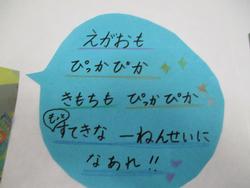 えがおも
ぴっかぴか
きもちも ぴっかぴか
もっと
すてきな 一ねんせいに
なあれ!!